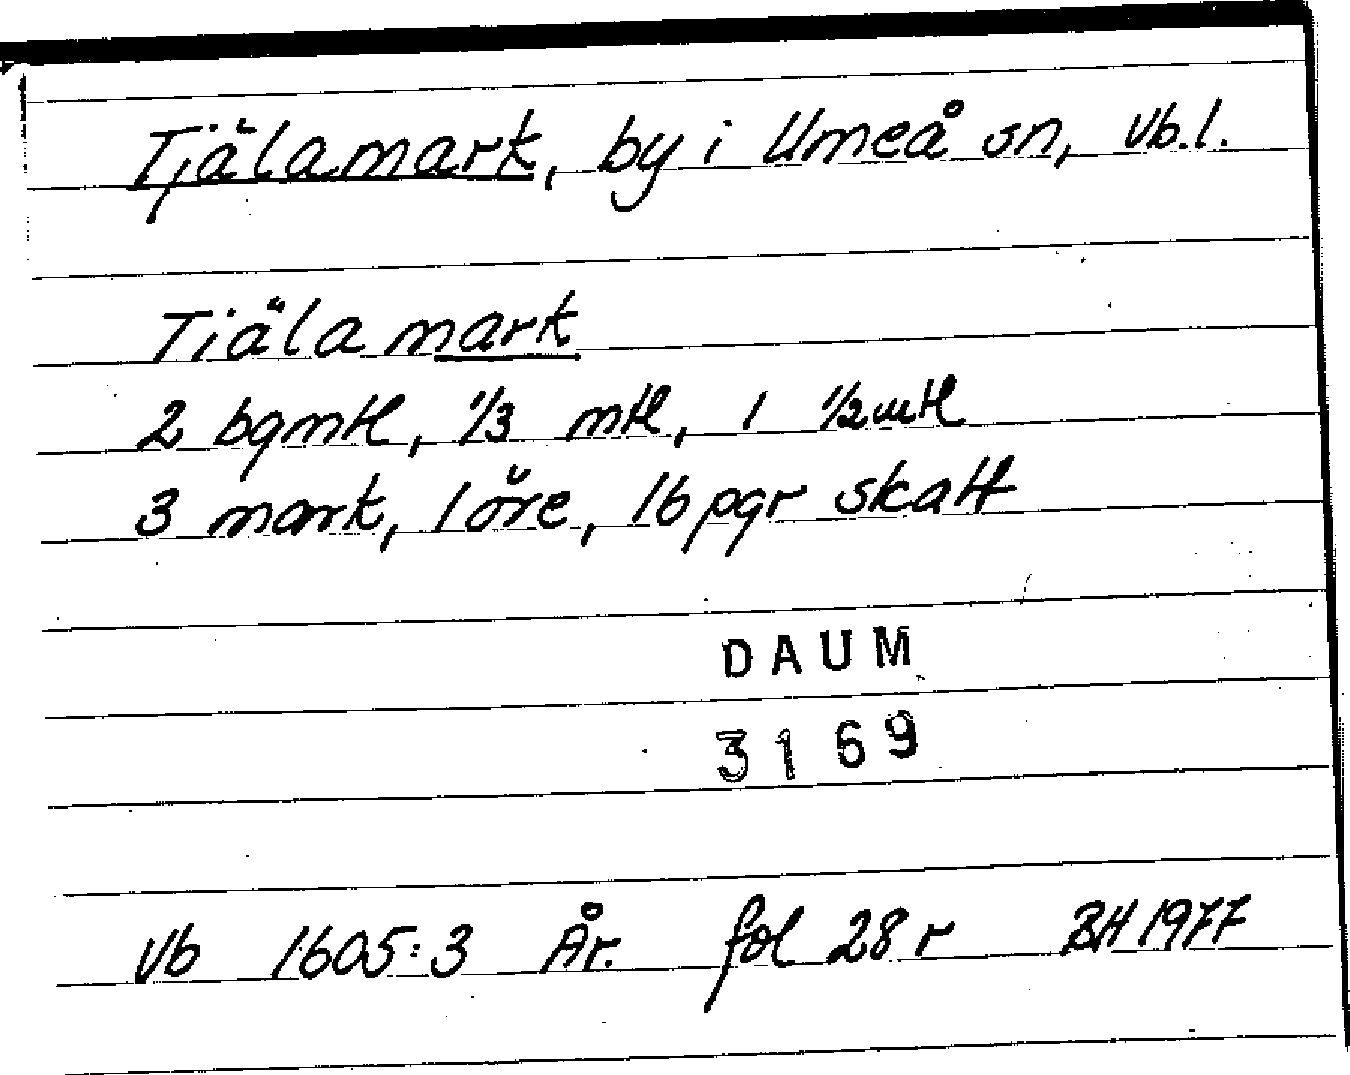 Tjälamark, by i Umeå sn, Vb.l.
Tiälamark
2 bgmtl, 1/3 mtl, 1 1/2 mtl
3 mark, 1 öre, 16 pgr skatt
DAUM
3169
Vb 1605:3 År. fol 28 r BH 1977